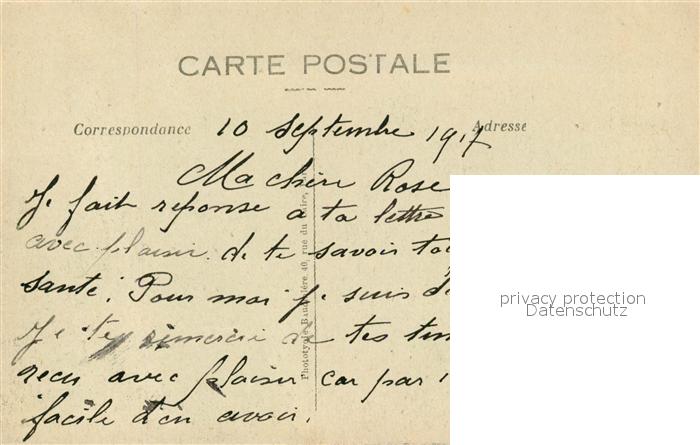 CARTE POSTALE
Correspondance
Adresse
10 Septembre 1917
Ma chère Rose
Je fait reponse a ta lettre
avec plaisir de te savoir
santé. Pour moi je suis
Je te remercie de tes
recu avec plaisir car par
facile d'en avoir.
Phototypie
40, rue du
privacy protection
Datenschutz